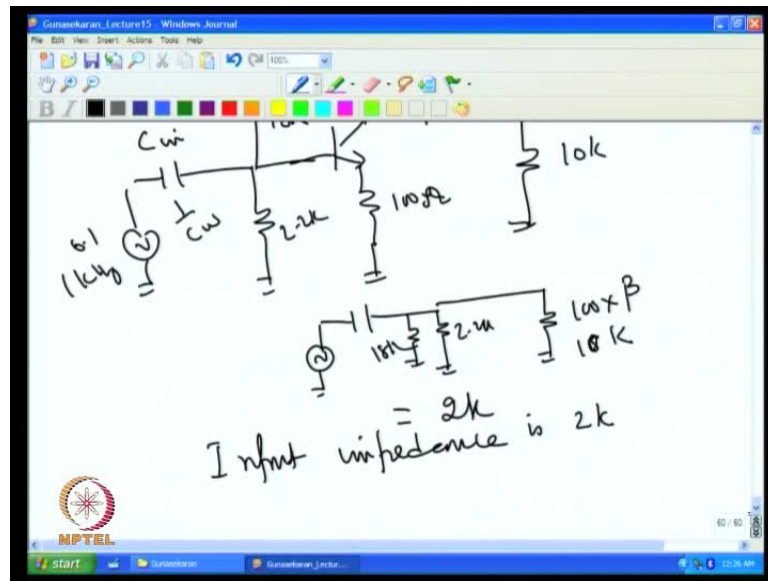 Gunasekaran_Lecture15 - Windows Journal
File Edit View Insert Actions Tools Help
100%
B I
Cin
10k
1/Cω
2.2k
100Ω
0.1
1kHz
18k
2.2k
100 x β
10K
= 2k
Input impedance is 2k
NPTEL
60 / 60
start
Gunasekaran
Gunasekaran_Lectur...
12:26 AM